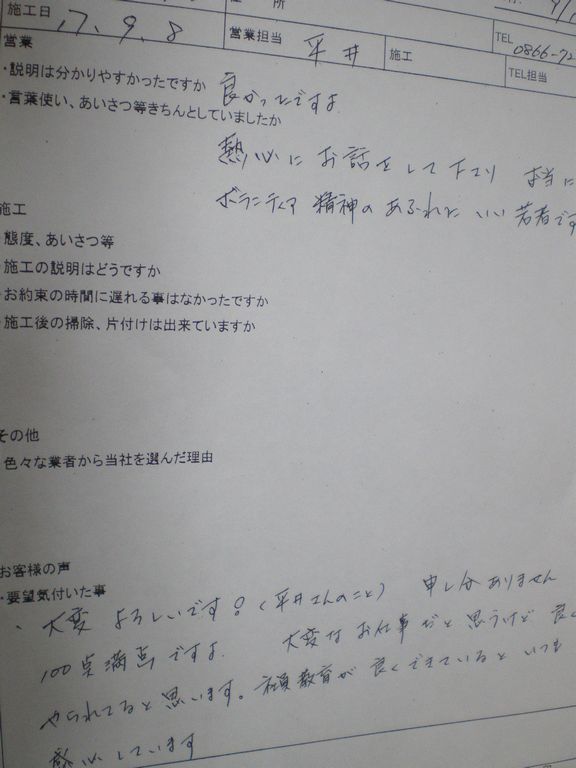 住 所
施工日 17. 9. 8 営業担当 平井 施工 TEL 0866-72
TEL担当
営業
・説明は分かりやすかったですか 良かったですよ
・言葉使い、あいさつ等きちんとしていましたか
熱心にお話をして下さり 本当に
ボランティア精神のあふれた いい若者です
施工
・態度、あいさつ等
・施工の説明はどうですか
・お約束の時間に遅れる事はなかったですか
・施工後の掃除、片付けは出来ていますか
その他
・色々な業者から当社を選んだ理由
お客様の声
・要望気付いた事
・大変よろしいです。(平井さんのこと) 申し分ありません
100点満点ですよ。 大変なお仕事だと思うけど良く
やられてると思います。社員教育が良くできているといつも
感心しています